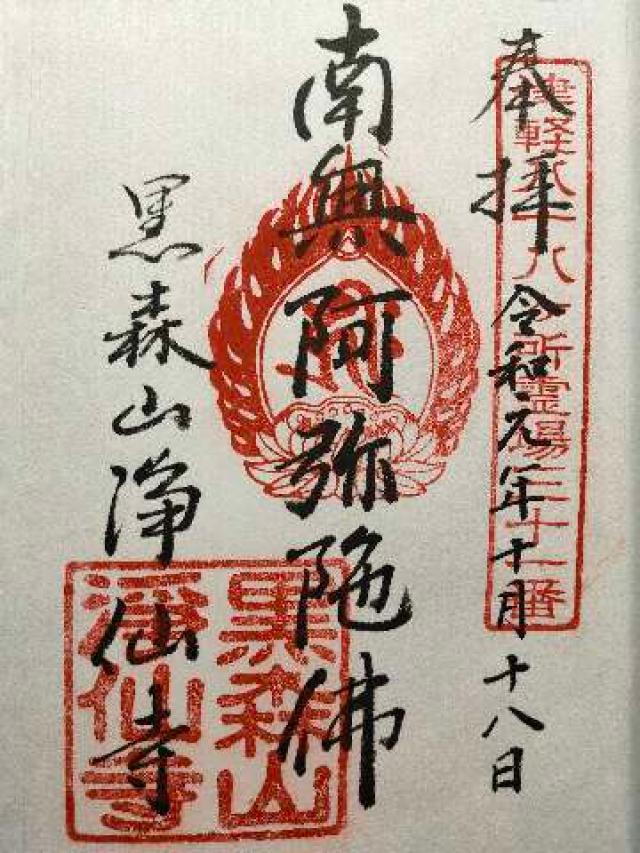 奉拝 令和元年十月十八日
津軽八十八ヶ所霊場三十一番
南無阿弥陀佛
黒森山淨仙寺
黒森山
淨仙寺